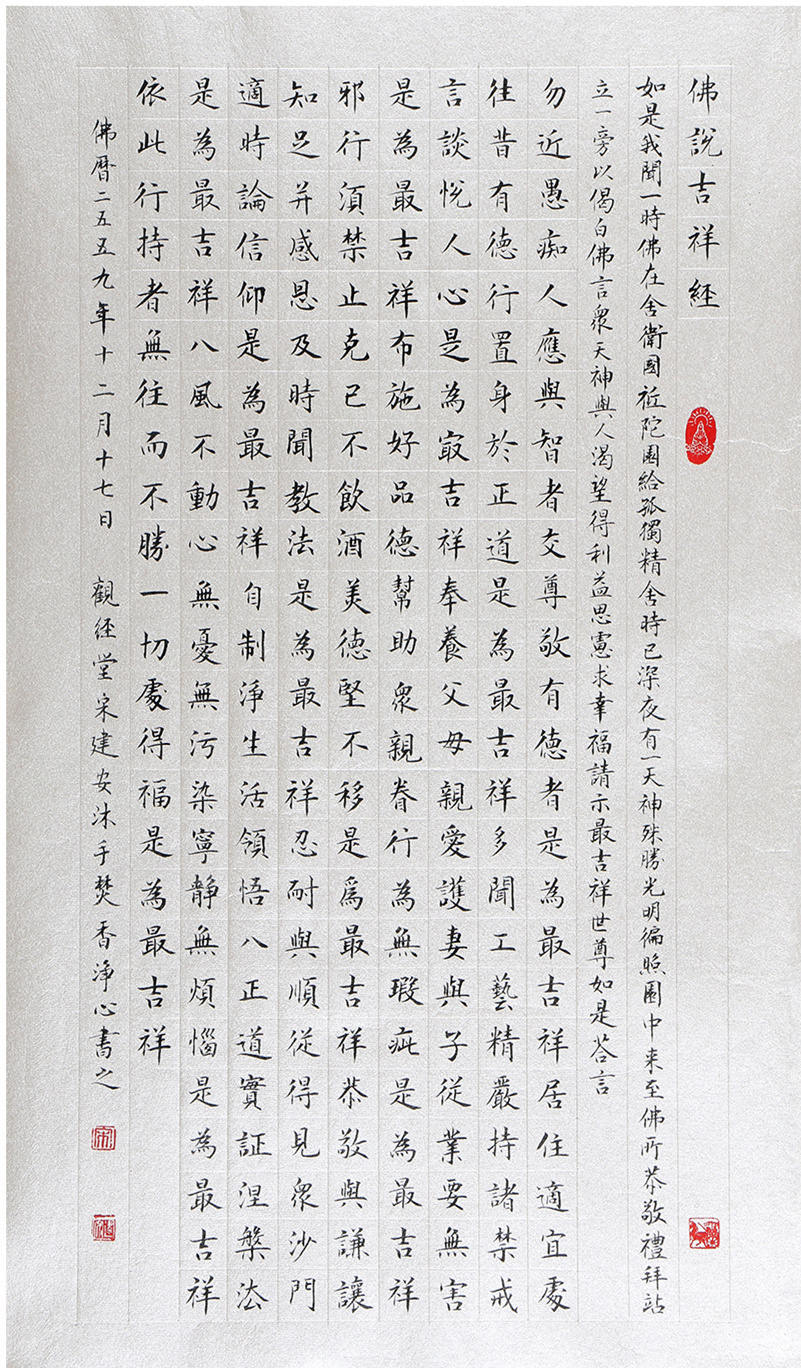 佛說吉祥經
如是我聞一時佛在舍衛國祗陀園給孤獨精舍時已深夜有一天神殊勝光明徧照園中来至佛所恭敬禮拜站
立一旁以偈白佛言衆天神與人渴望得利益思慮求幸福請示最吉祥世尊如是荅言
勿近愚痴人應與智者交尊敬有德者是為最吉祥居住適宜處
往昔有德行置身於正道是為最吉祥多聞工藝精嚴持諸禁戒
言談悅人心是為冣吉祥奉養父母親愛護妻與子從業要無害
是為最吉祥布施好品德幫助衆親眷行為無瑕疵是為最吉祥
邪行須禁止克已不飲酒美德堅不移是爲最吉祥恭敬與謙讓
知足并感恩及時聞教法是為最吉祥忍耐與順從得見衆沙門
適時論信仰是為最吉祥自制淨生活領悟八正道實証涅槃法
是為最吉祥八風不動心無憂無污染寧静無煩惱是為最吉祥
依此行持者無往而不勝一切處得福是為最吉祥
佛曆二五五九年十二月十七日 觀經堂宋建安沐手焚香淨心書之